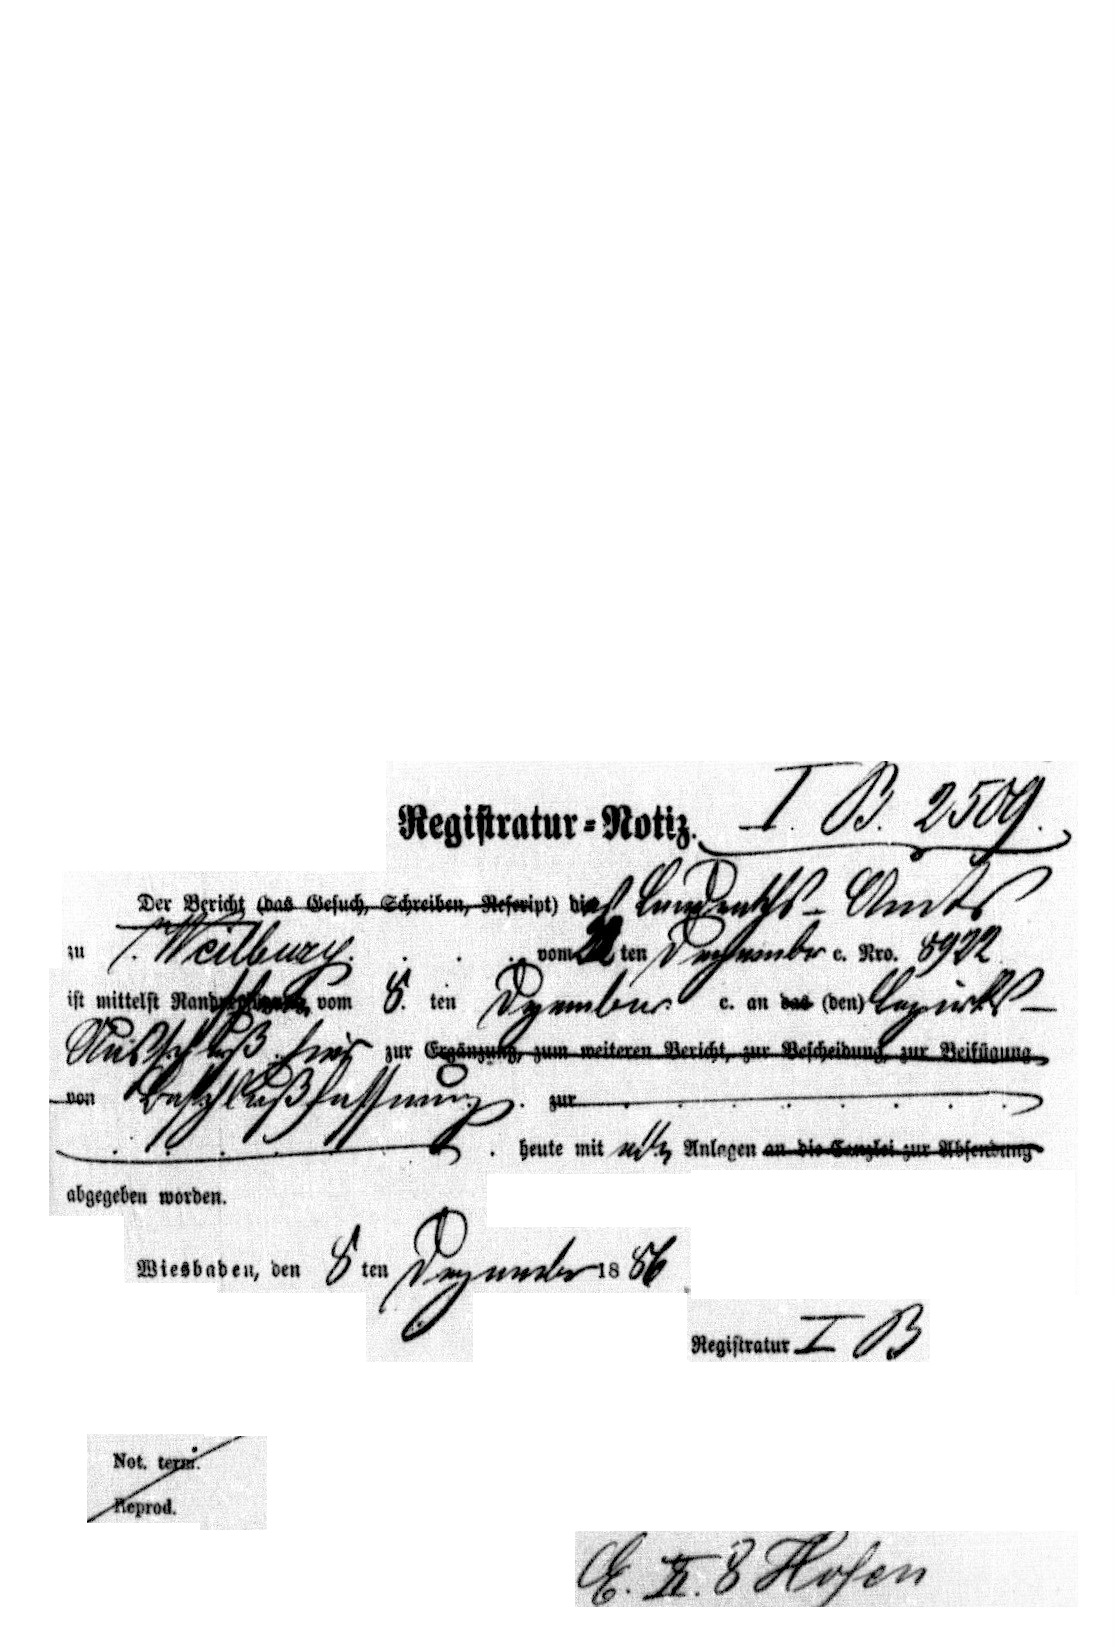 Registratur-Notiz. I. B. 2509.
Der Bericht (das Gesuch, Schreiben, Rescript) des Landraths-Amts
zu Weilburg. . . . vom ten Dezember c. Nro. 8922
ist mittelst vom 8. ten Dezember c. an das (den) Bezirks-
Ausschuß hier zur Ergänzung, zum weiteren Bericht, zur Bescheidung, zur Beifügung
von Beschlußfassung. zur
. heute mit Anlagen an die Canzlei zur Absendung
abgegeben worden.
Wiesbaden, den 8 ten Dezember 1886
Registratur I B
Not. term.
Reprod.
E. II. 8 Hofen